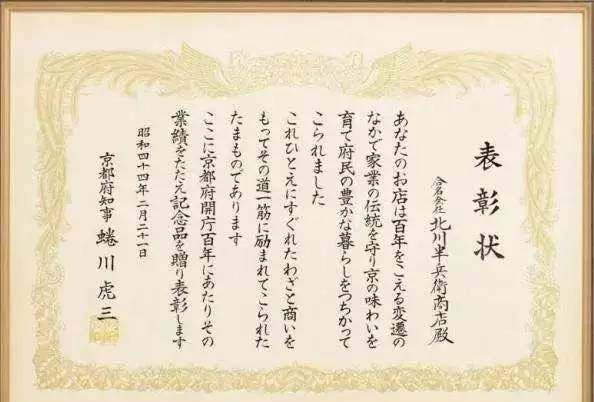 表彰状
合名会社 北川半兵衛商店殿
あなたのお店は百年をこえる変遷の
なかで家業の伝統を守り京の味わいを
育て府民の豊かな暮らしをつちかって
こられました
これひとえにすぐれたわざと商いを
もってその道一筋に励まれてこられた
たまものであります
ここに京都府開庁百年にあたりその
業績をたたえ記念品を贈り表彰します
昭和四十四年二月二十一日
京都府知事 蜷川虎三